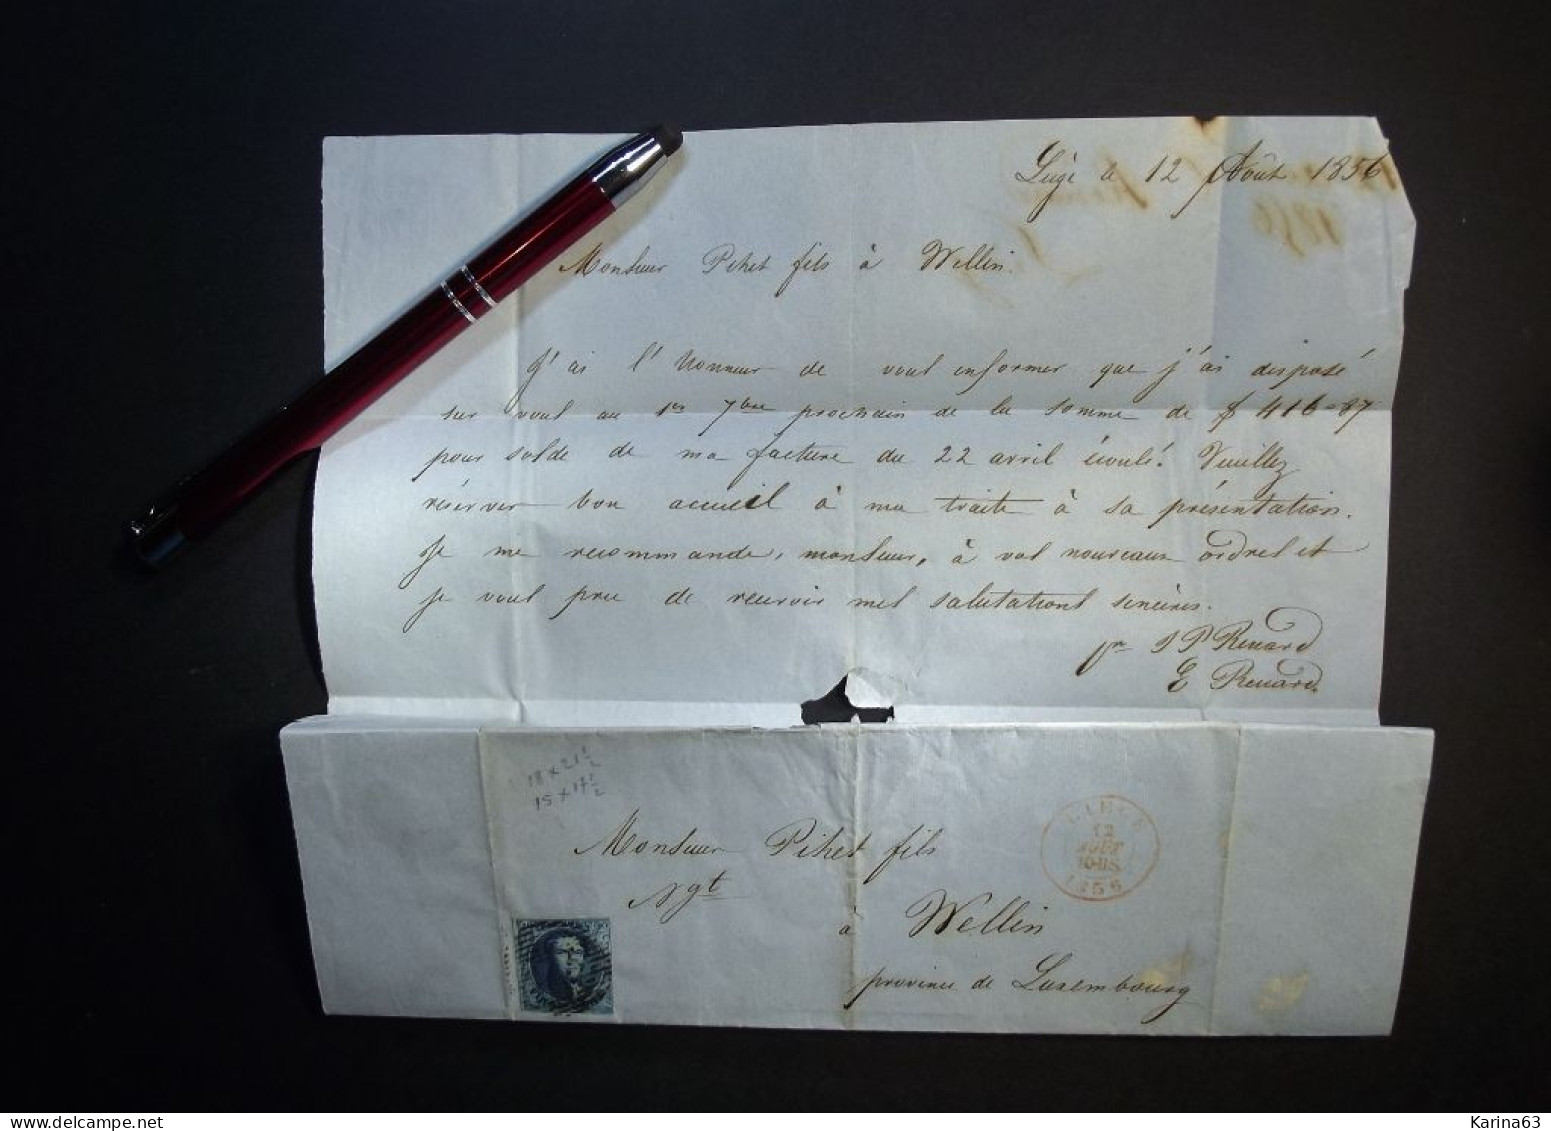 Liège le 12 Août 1856
Monsieur Pihet fils à Wellin.
J'ai l'honneur de vous informer que j'ai disposé
sur vous au 1er 7bre prochain de la somme de f 416-87
pour solde de ma facture du 22 avril écoulé. Veuillez
réserver bon accueil à ma traite à sa présentation.
Je me recommande, monsieur, à vos nouveaux ordres et
je vous prie de recevoir mes salutations sincères.
pr J P Renard
E Renard
18 x 21 1/2
15 x 17 1/2
LIEGE
12
AOUT
10-11S.
1856
Monsieur Pihet fils
Ngt
à Wellin
province de Luxembourg
1856
Karina63